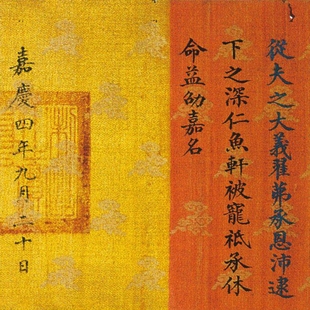 從夫之大義翟茀承恩沛逮
下之深仁魚軒被寵祗承休
命益劭嘉名
嘉慶四年九月二十日